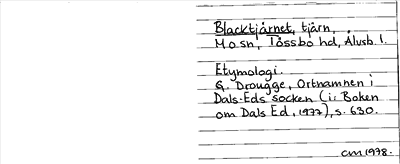 Blacktjärnet, tjärn,
Mo sn, Tössbo hd, Älvsb. l.
Etymologi.
G. Drougge, Ortnamnen i
Dals-Eds socken (i: Boken
om Dals Ed, 1977), s. 630.
cm 1978.